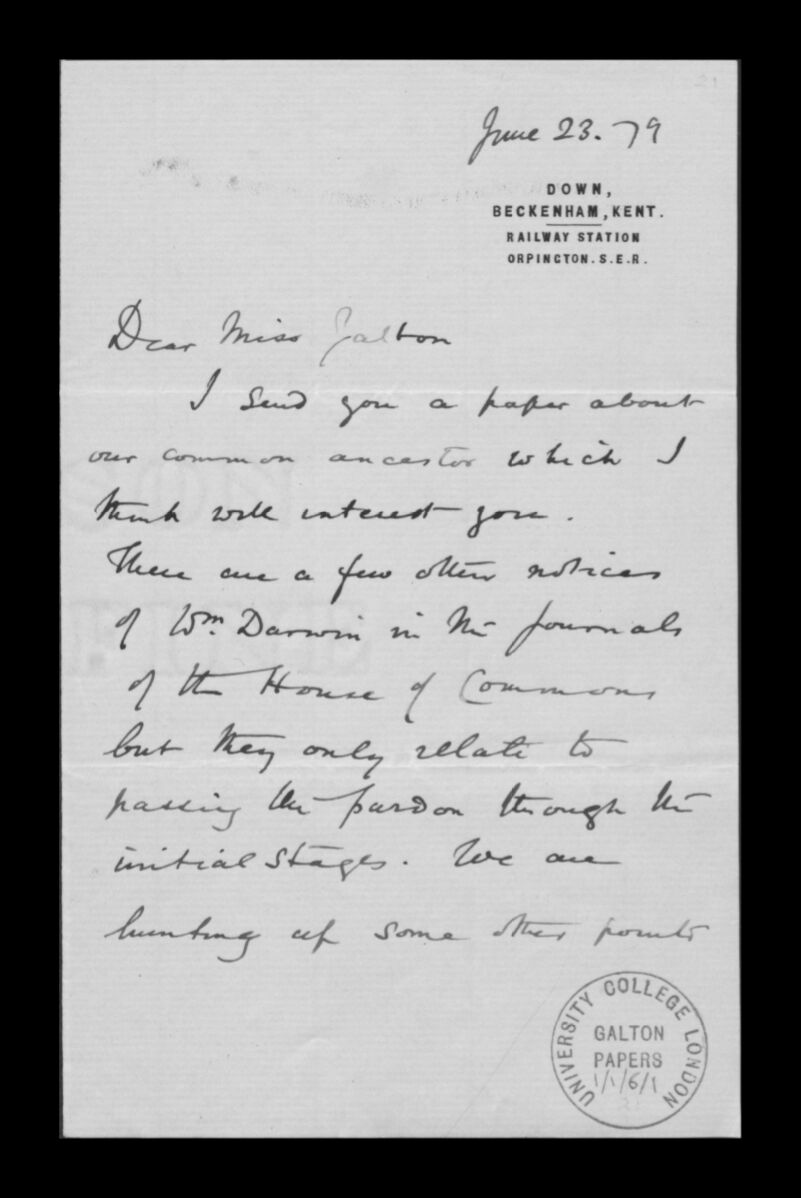 21
June 23. 79
DOWN,
BECKENHAM, KENT.
RAILWAY STATION
ORPINGTON. S.E.R.
Dear Miss Galton
I send you a paper about
our common ancestor which I
think will interest you.
There are a few other notices
of Wm. Darwin in the Journals
of the House of Commons
but they only relate to
passing the pardon through the
initial stages. We are
hunting up some other points
UNIVERSITY COLLEGE LONDON
GALTON
PAPERS
1/1/6/1